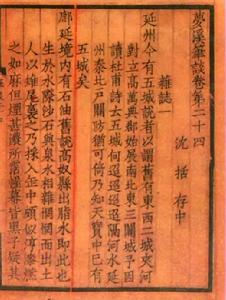 夢溪筆談卷第二十四
沈括存中
雜誌一
延州今有五城說者以謂舊有東西二城夾河
對立高萬興典郡始展南北東三關城予因
讀杜甫詩云五城何迢迢迢迢隔河水延
州秦北戶關防猶可倚乃知天寶中已有
五城矣
鄜延境內有石油舊說高奴縣出脂水即此也
生於水際沙石與泉水相雜惘惘而出土
人以雉尾裛之乃採入缶中頗似淳漆燃
之如麻但煙甚濃所霑幄幕皆黑予疑其